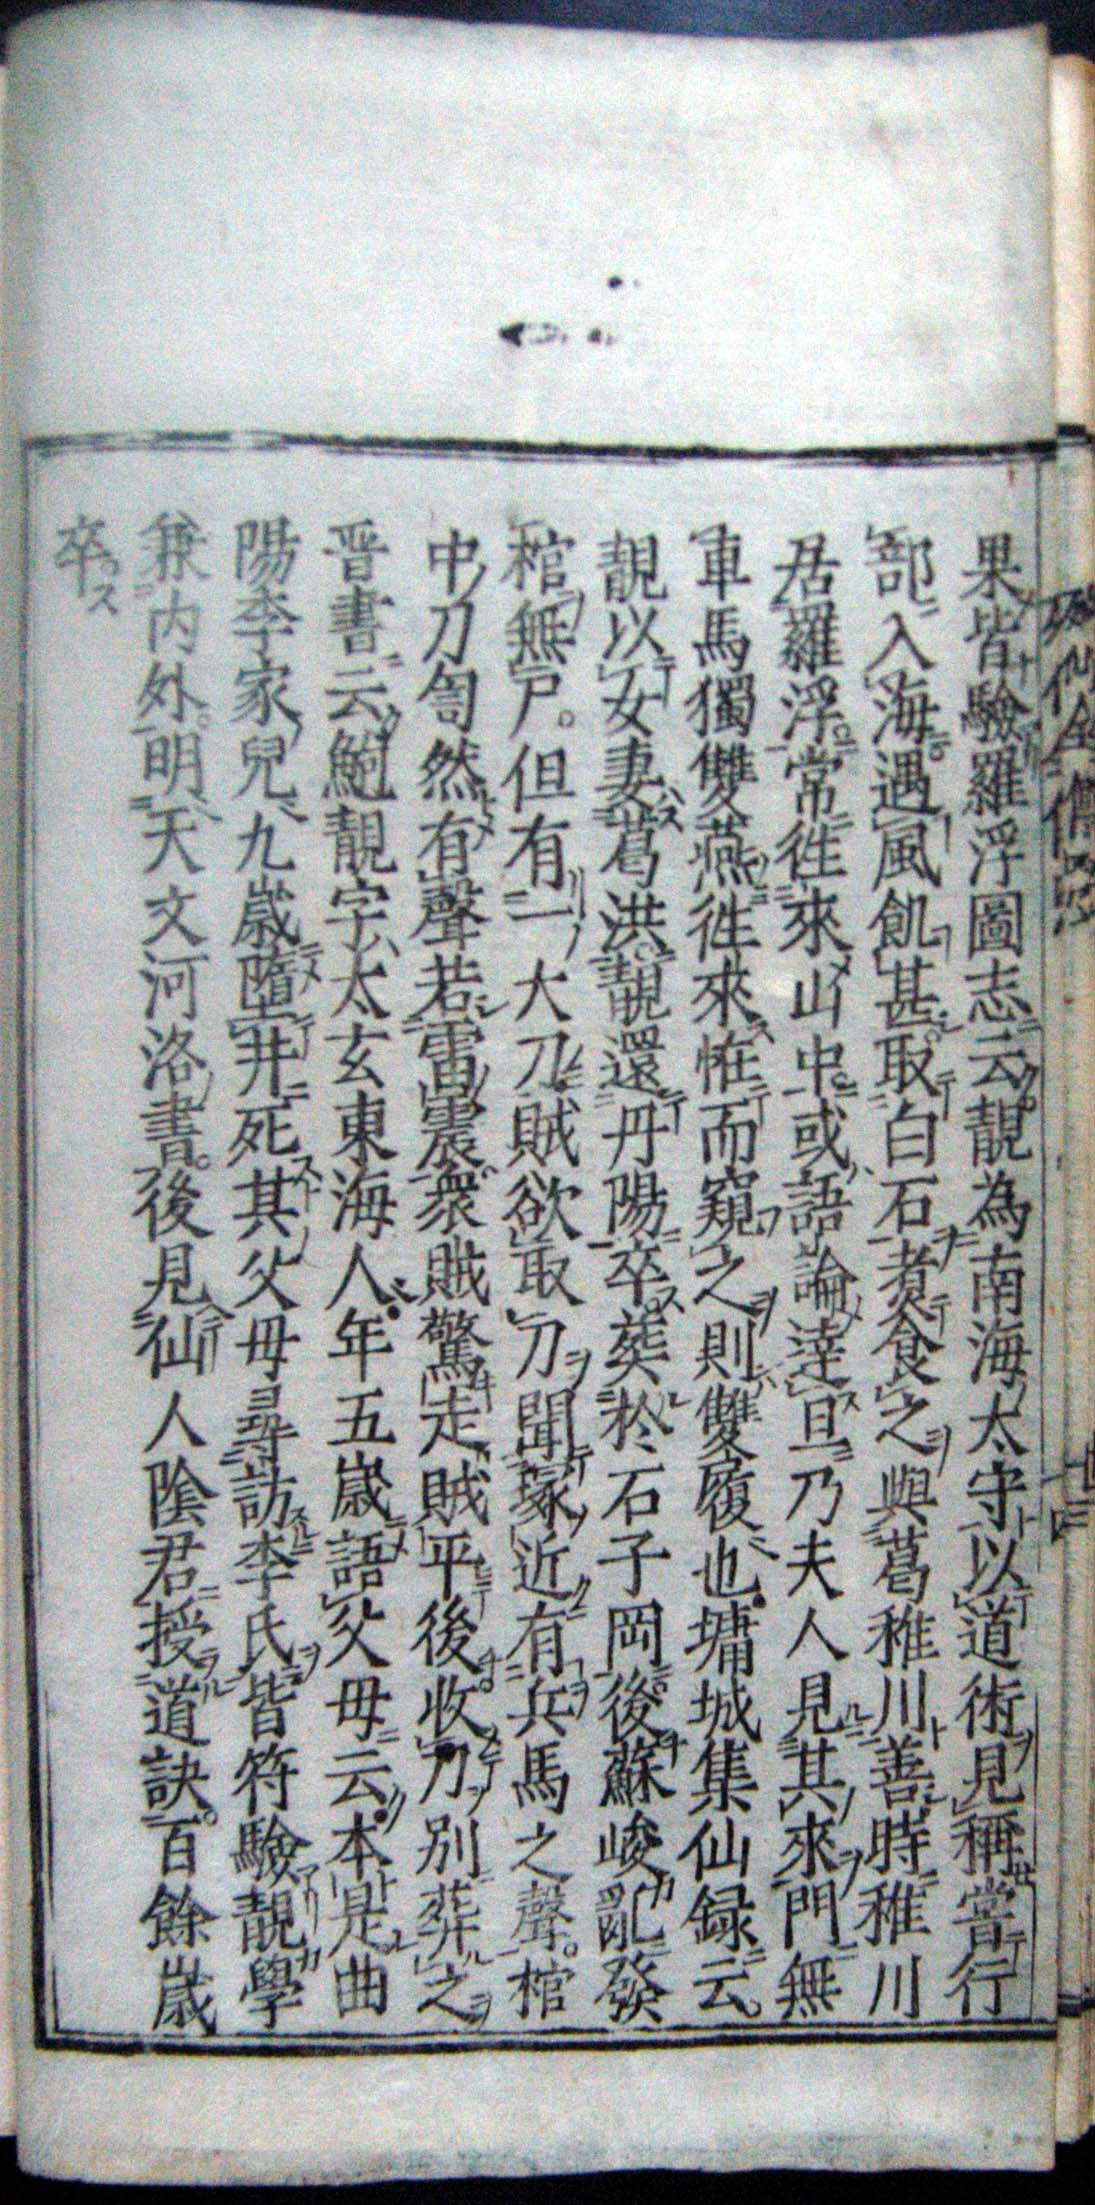 果皆驗羅浮圖志云靚為南海太守以道術見稱嘗行
部入海遇風飢甚取白石煮食之與葛稚川善時稚川
居羅浮常徃來山中或語論達旦乃夫人見其來門無
車馬獨雙燕徃來恠而窺之則雙履也墉城集仙録云
靚以女妻葛洪靚還丹陽卒葬於石子岡後蘇峻亂發
棺無尸但有一大刀賊欲取刀聞塚近有兵馬之聲棺
中刀訇然有聲若雷震衆賊驚走賊平後收刀別葬之
晋書云鮑靚字太玄東海人年五歲語父母云本是曲
陽李家兒九歲墮井死其父母尋訪李氏皆符驗靚學
兼内外明天文河洛書後見仙人陰君授道訣百餘歲
卒